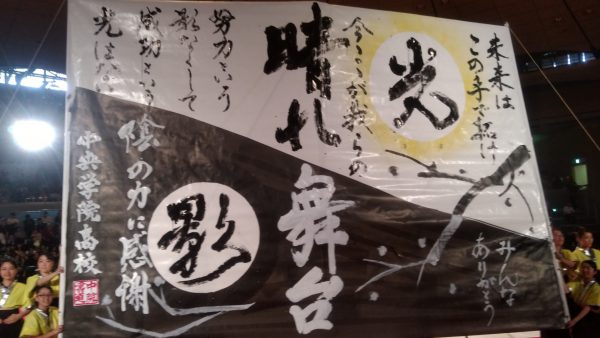 未来は
この手で
光
今ここが我らの
晴れ舞台
努力という
影なくして
成功という
光はない
影
陰の力に感謝
みんな
ありがとう
中央学院高校